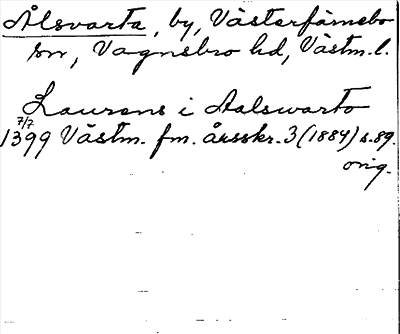 Ålsvarta, by, Västerfärnebo
sn, Vagnsbro hd, Västm. l.
Laurens i Aalswarto
7/7
1399 Västm. fm. årsskr. 3 (1884) s. 89.
orig.